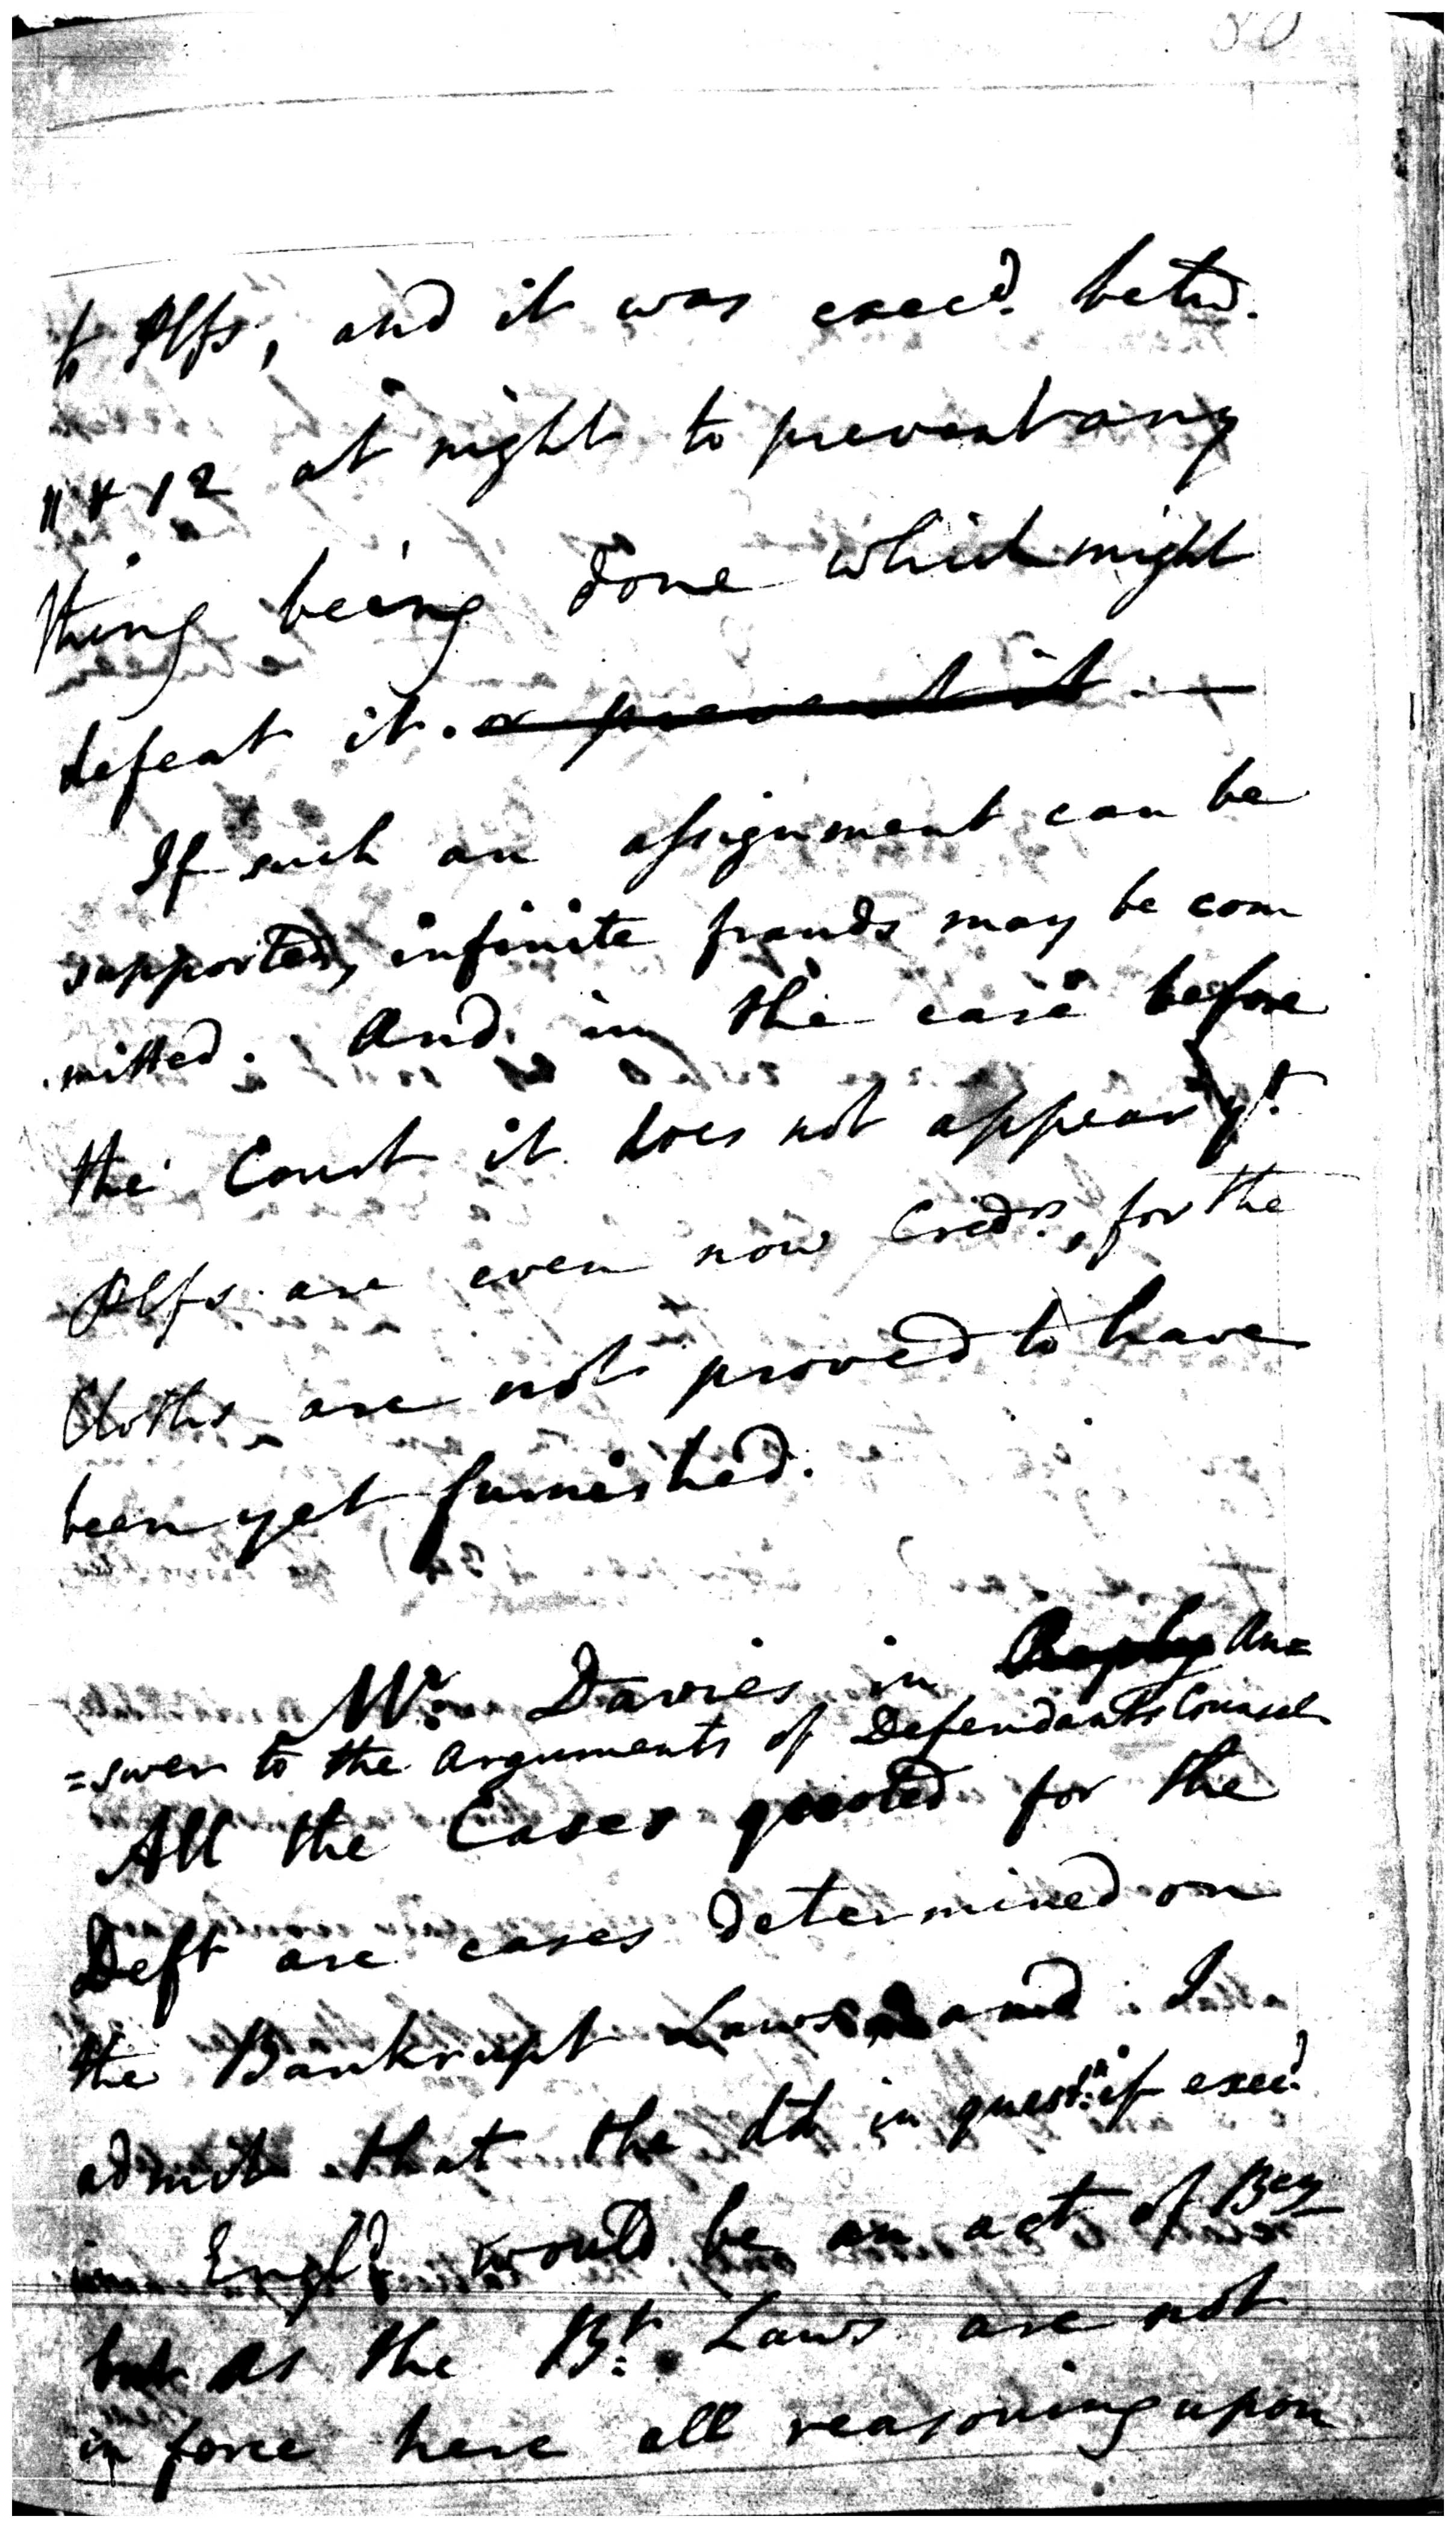 80
to Plfs, and it was execd. betw.
11 & 12 at night to prevent any
thing being done which might
defeat it. or prevent it. —
If such an assignment can be
supported, infinite frauds may be com
mitted. And in the case before
the Court it does not appear yt.
Plfs. are even now Credrs., for the
Cloths are not proved to have
been yet furnished.
Mr. Davies in Reply An=
=swer to the arguments of Defendants Counsel
All the Cases quoted for the
Deft are cases determined on
the Bankrupt Laws and I
admit that the dd in questn. if execd.
in Engld would be an act of Bcy
but as the Bt. Laws are not
in force here all reasoning upon